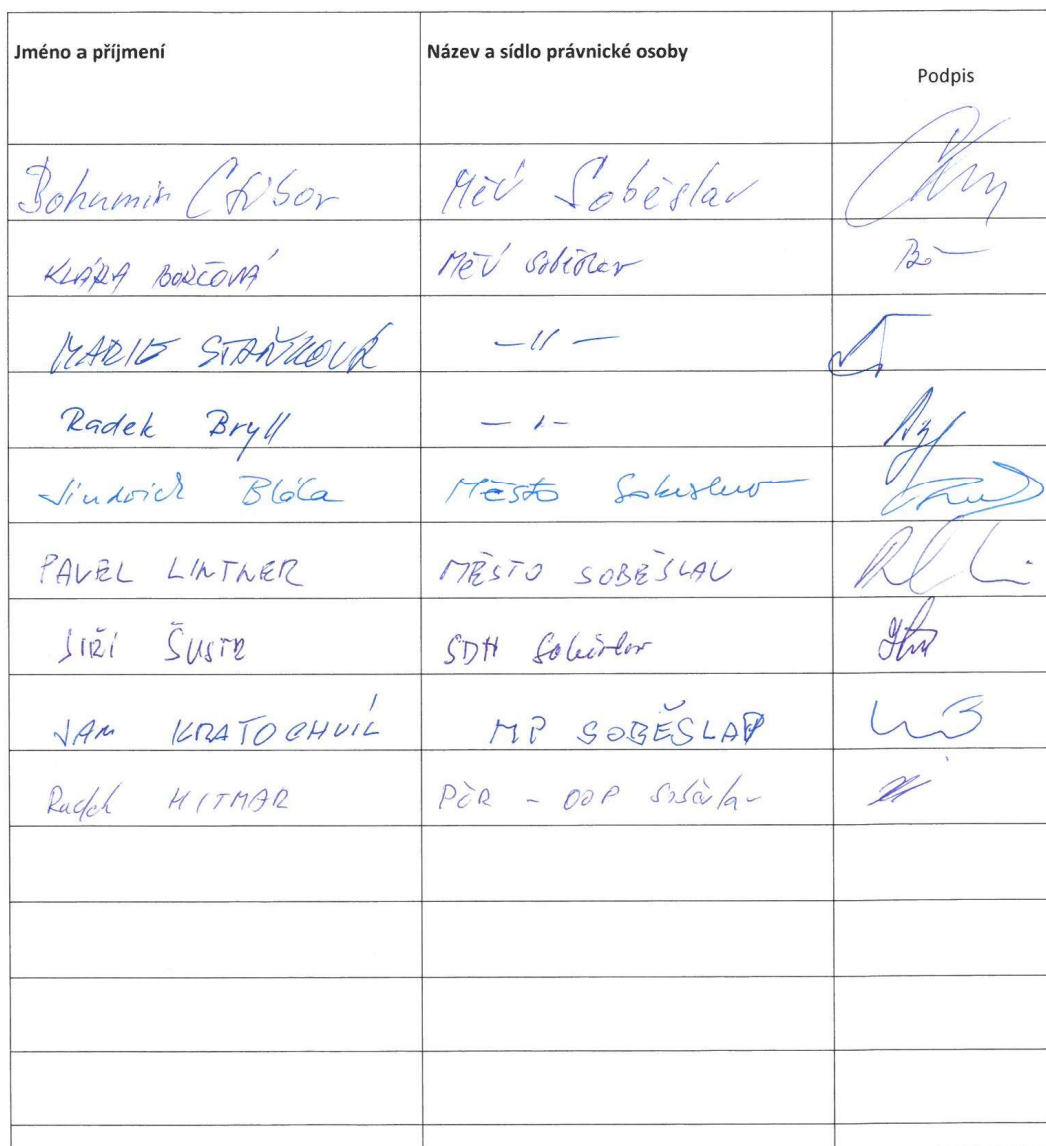 Jméno a příjmení Název a sídlo právnické osoby Podpis
Bohumír Ctibor MěÚ Soběslav
KLÁRA BORČOVÁ MěÚ Soběslav
MARIE STAŇKOVÁ —11—
Radek Bryll —1—
Jindřich Bláha Město Soběslav
PAVEL LINTNER MĚSTO SOBĚSLAV
JIŘÍ ŠUSTR SDH Soběslav
JAN KRATOCHVÍL MP SOBĚSLAV
Radek HITMAR PČR - OOP Soběslav